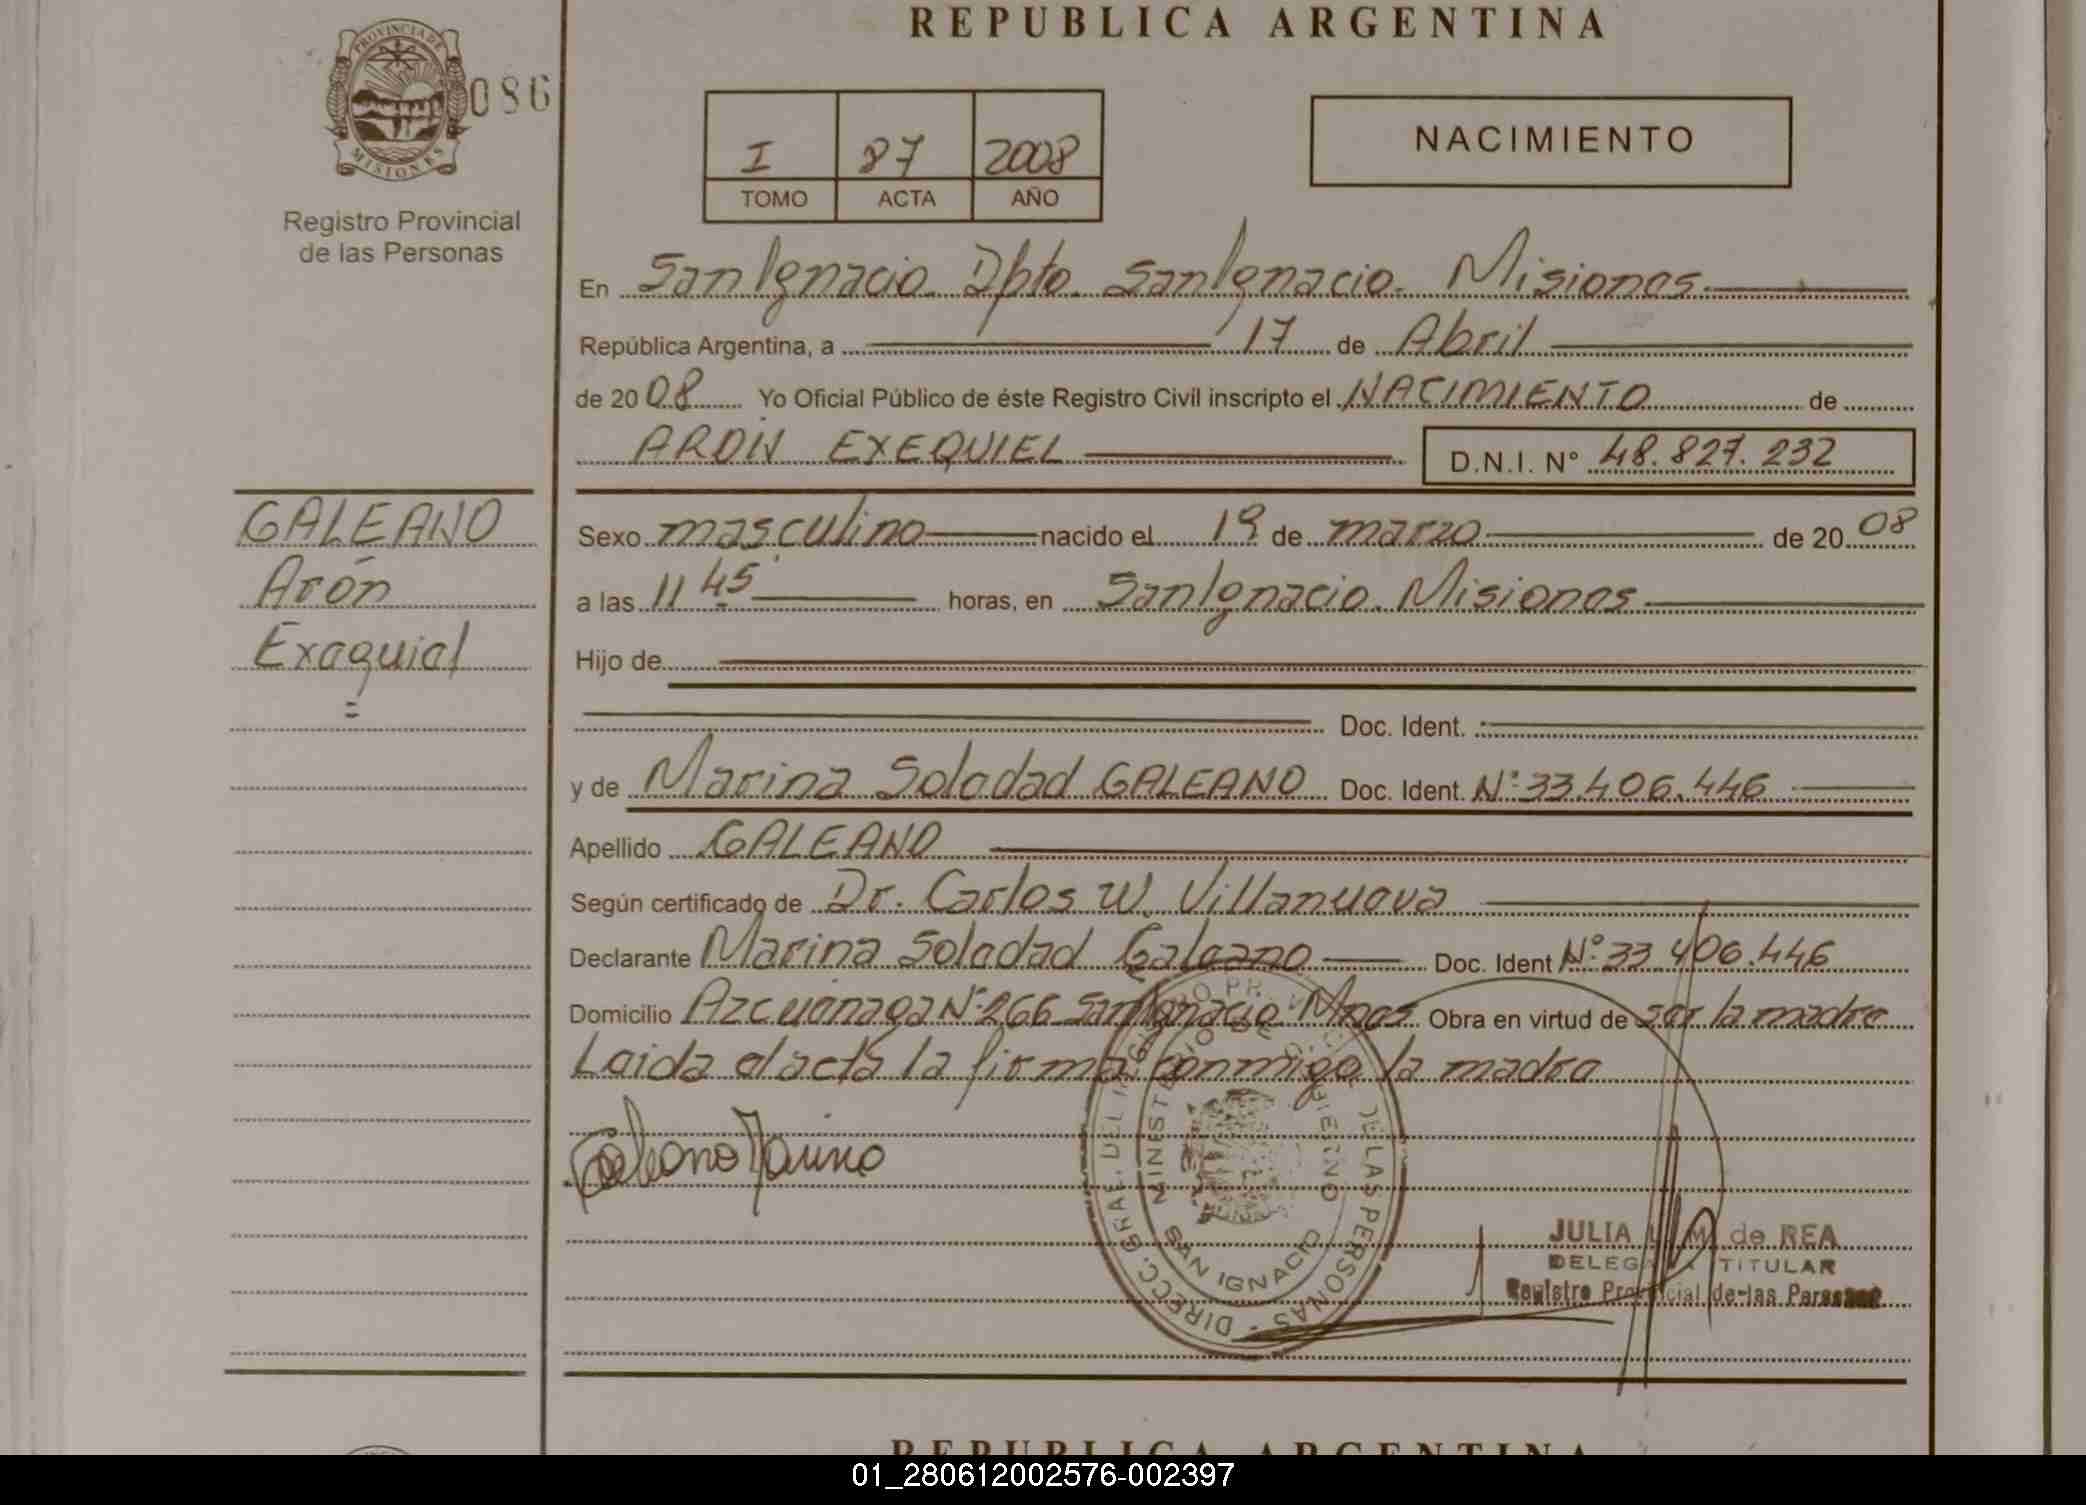 REPUBLICA ARGENTINA
PROVINCIA DE
MISIONES
086
Registro Provincial
de las Personas
I 87 2008
TOMO ACTA AÑO
NACIMIENTO
En San Ignacio Dpto. San Ignacio. Misiones.
República Argentina, a 17 de Abril
de 2008 Yo Oficial Público de éste Registro Civil inscripto el NACIMIENTO de
ARÓN EXEQUIEL D.N.I. N° 48.827.232
GALEANO
Arón
Exequiel
=
Sexo masculino nacido el 19 de marzo de 2008
a las 11 45 horas, en San Ignacio. Misiones
Hijo de
Doc. Ident.
y de Marina Soledad GALEANO Doc. Ident. N° 33.406.446
Apellido GALEANO
Según certificado de Dr. Carlos W. Villanueva
Declarante Marina Soledad Galeano Doc. Ident N° 33.406.446
Domicilio Azcuénaga N° 266 San Ignacio Mnes Obra en virtud de ser la madre
Leida el acta la firma conmigo la madre
Galeano Marina
DIRECC. GRAL. DEL REGISTRO PROVINCIAL DE LAS PERSONAS
MINISTERIO DE GOBIERNO
SAN IGNACIO
JULIA M. de REA
DELEGADA TITULAR
Registro Provincial de las Personas
REPUBLICA ARGENTINA
01_280612002576-002397